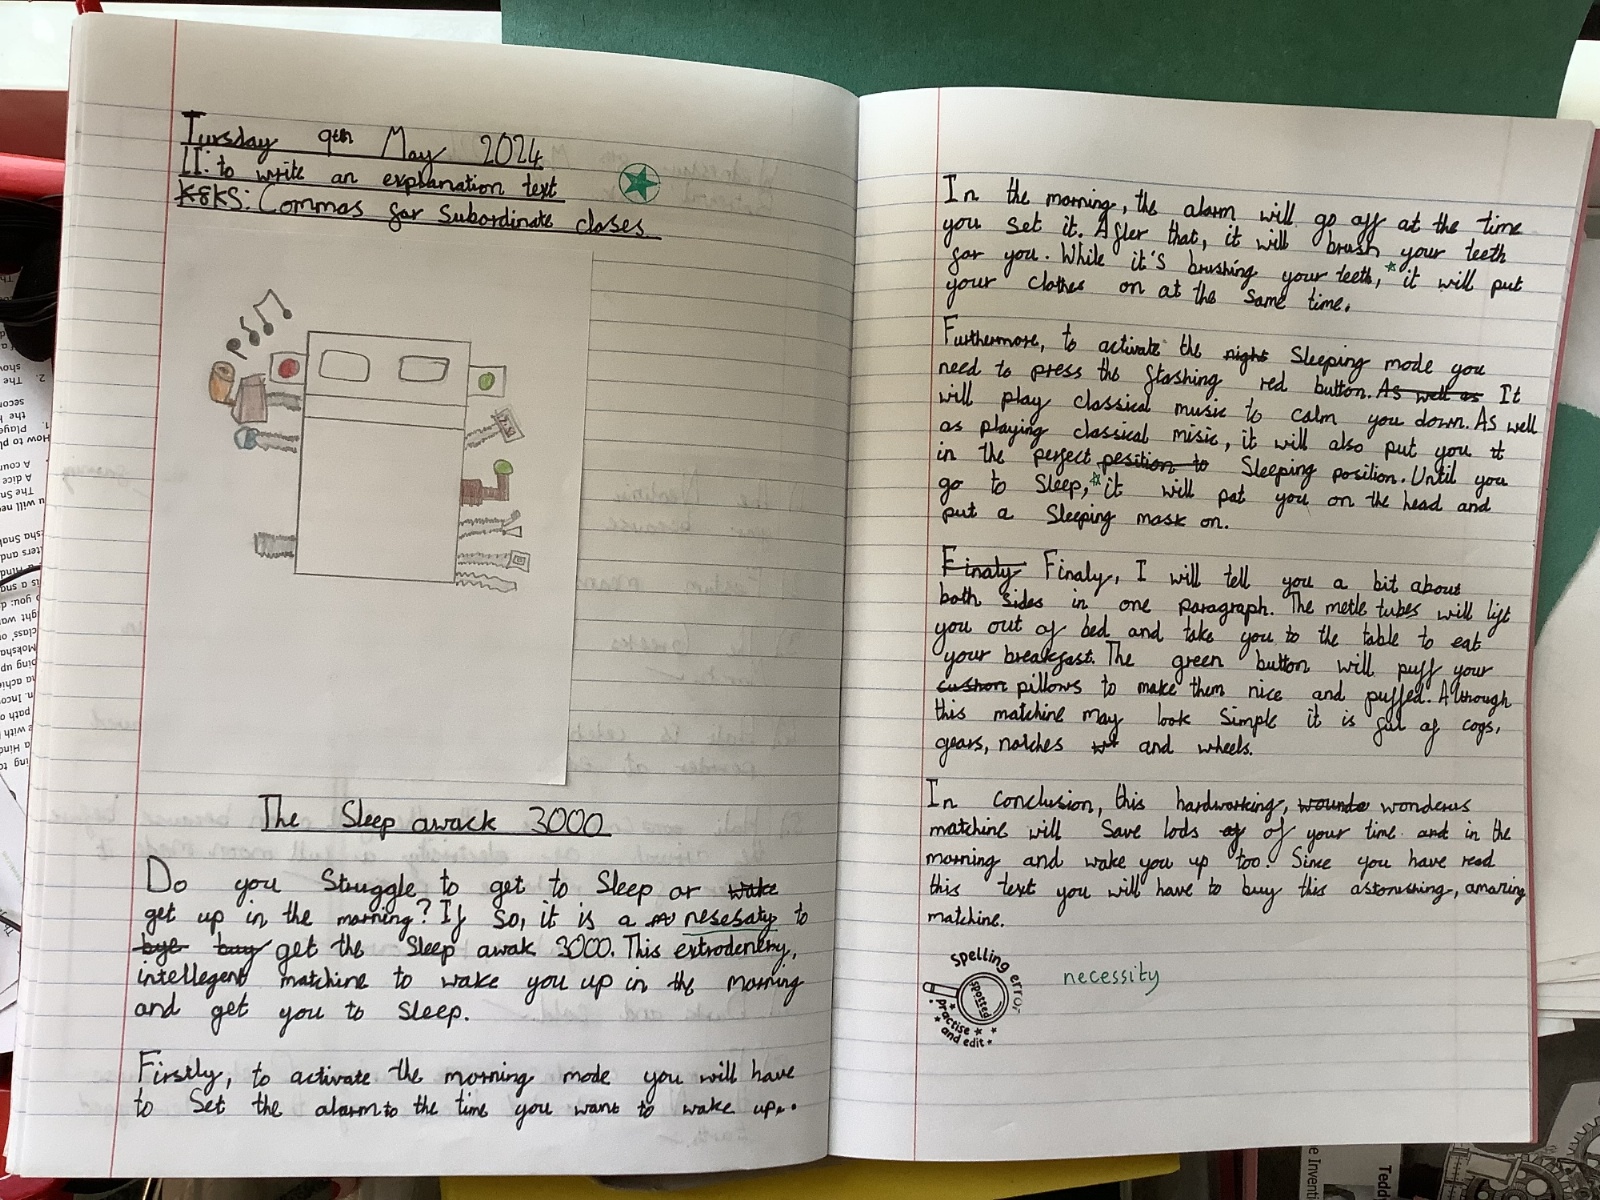 Tursday 9th May 2024
LI: to write an explanation text
K&KS: Commas for Subordinate clases
The Sleep awack 3000
Do you Struggle to get to Sleep or wake
get up in the morning? If so, it is a nesesaty to
bye buy get the Sleep awak 3000. This extrodenery,
intellegent matchine to wake you up in the morning
and get you to Sleep.
Firstly, to activate the morning mode you will have
to Set the alarm to the time you want to wake up.
In the morning, the alarm will go off at the time
you set it. After that, it will brush your teeth
for you. While it's brushing your teeth, it will put
your clothes on at the same time.
Furthermore, to activate the night Sleeping mode you
need to press the flashing red button. As well as It
will play classical music to calm you down. As well
as playing classical misic, it will also put you it
in the perfect pesition to Sleeping position. Until you
go to Sleep, it will pat you on the head and
put a Sleeping mask on.
Finaly Finaly, I will tell you a bit about
both sides in one paragraph. The metle tubes will lift
you out of bed and take you to the table to eat
your breakfast. The green button will puff your
cushon pillows to make them nice and puffed. Although
this matchine may look Simple it is ful of cogs,
gears, notches and wheels.
In conclusion, this hardworking, wounde wonderus
matchine will Save lods of of your time and in the
morning and wake you up too. Since you have read
this text you will have to buy this astonishing, amazing
matchine.
Spelling error
spotted
practise
and edit
necessity